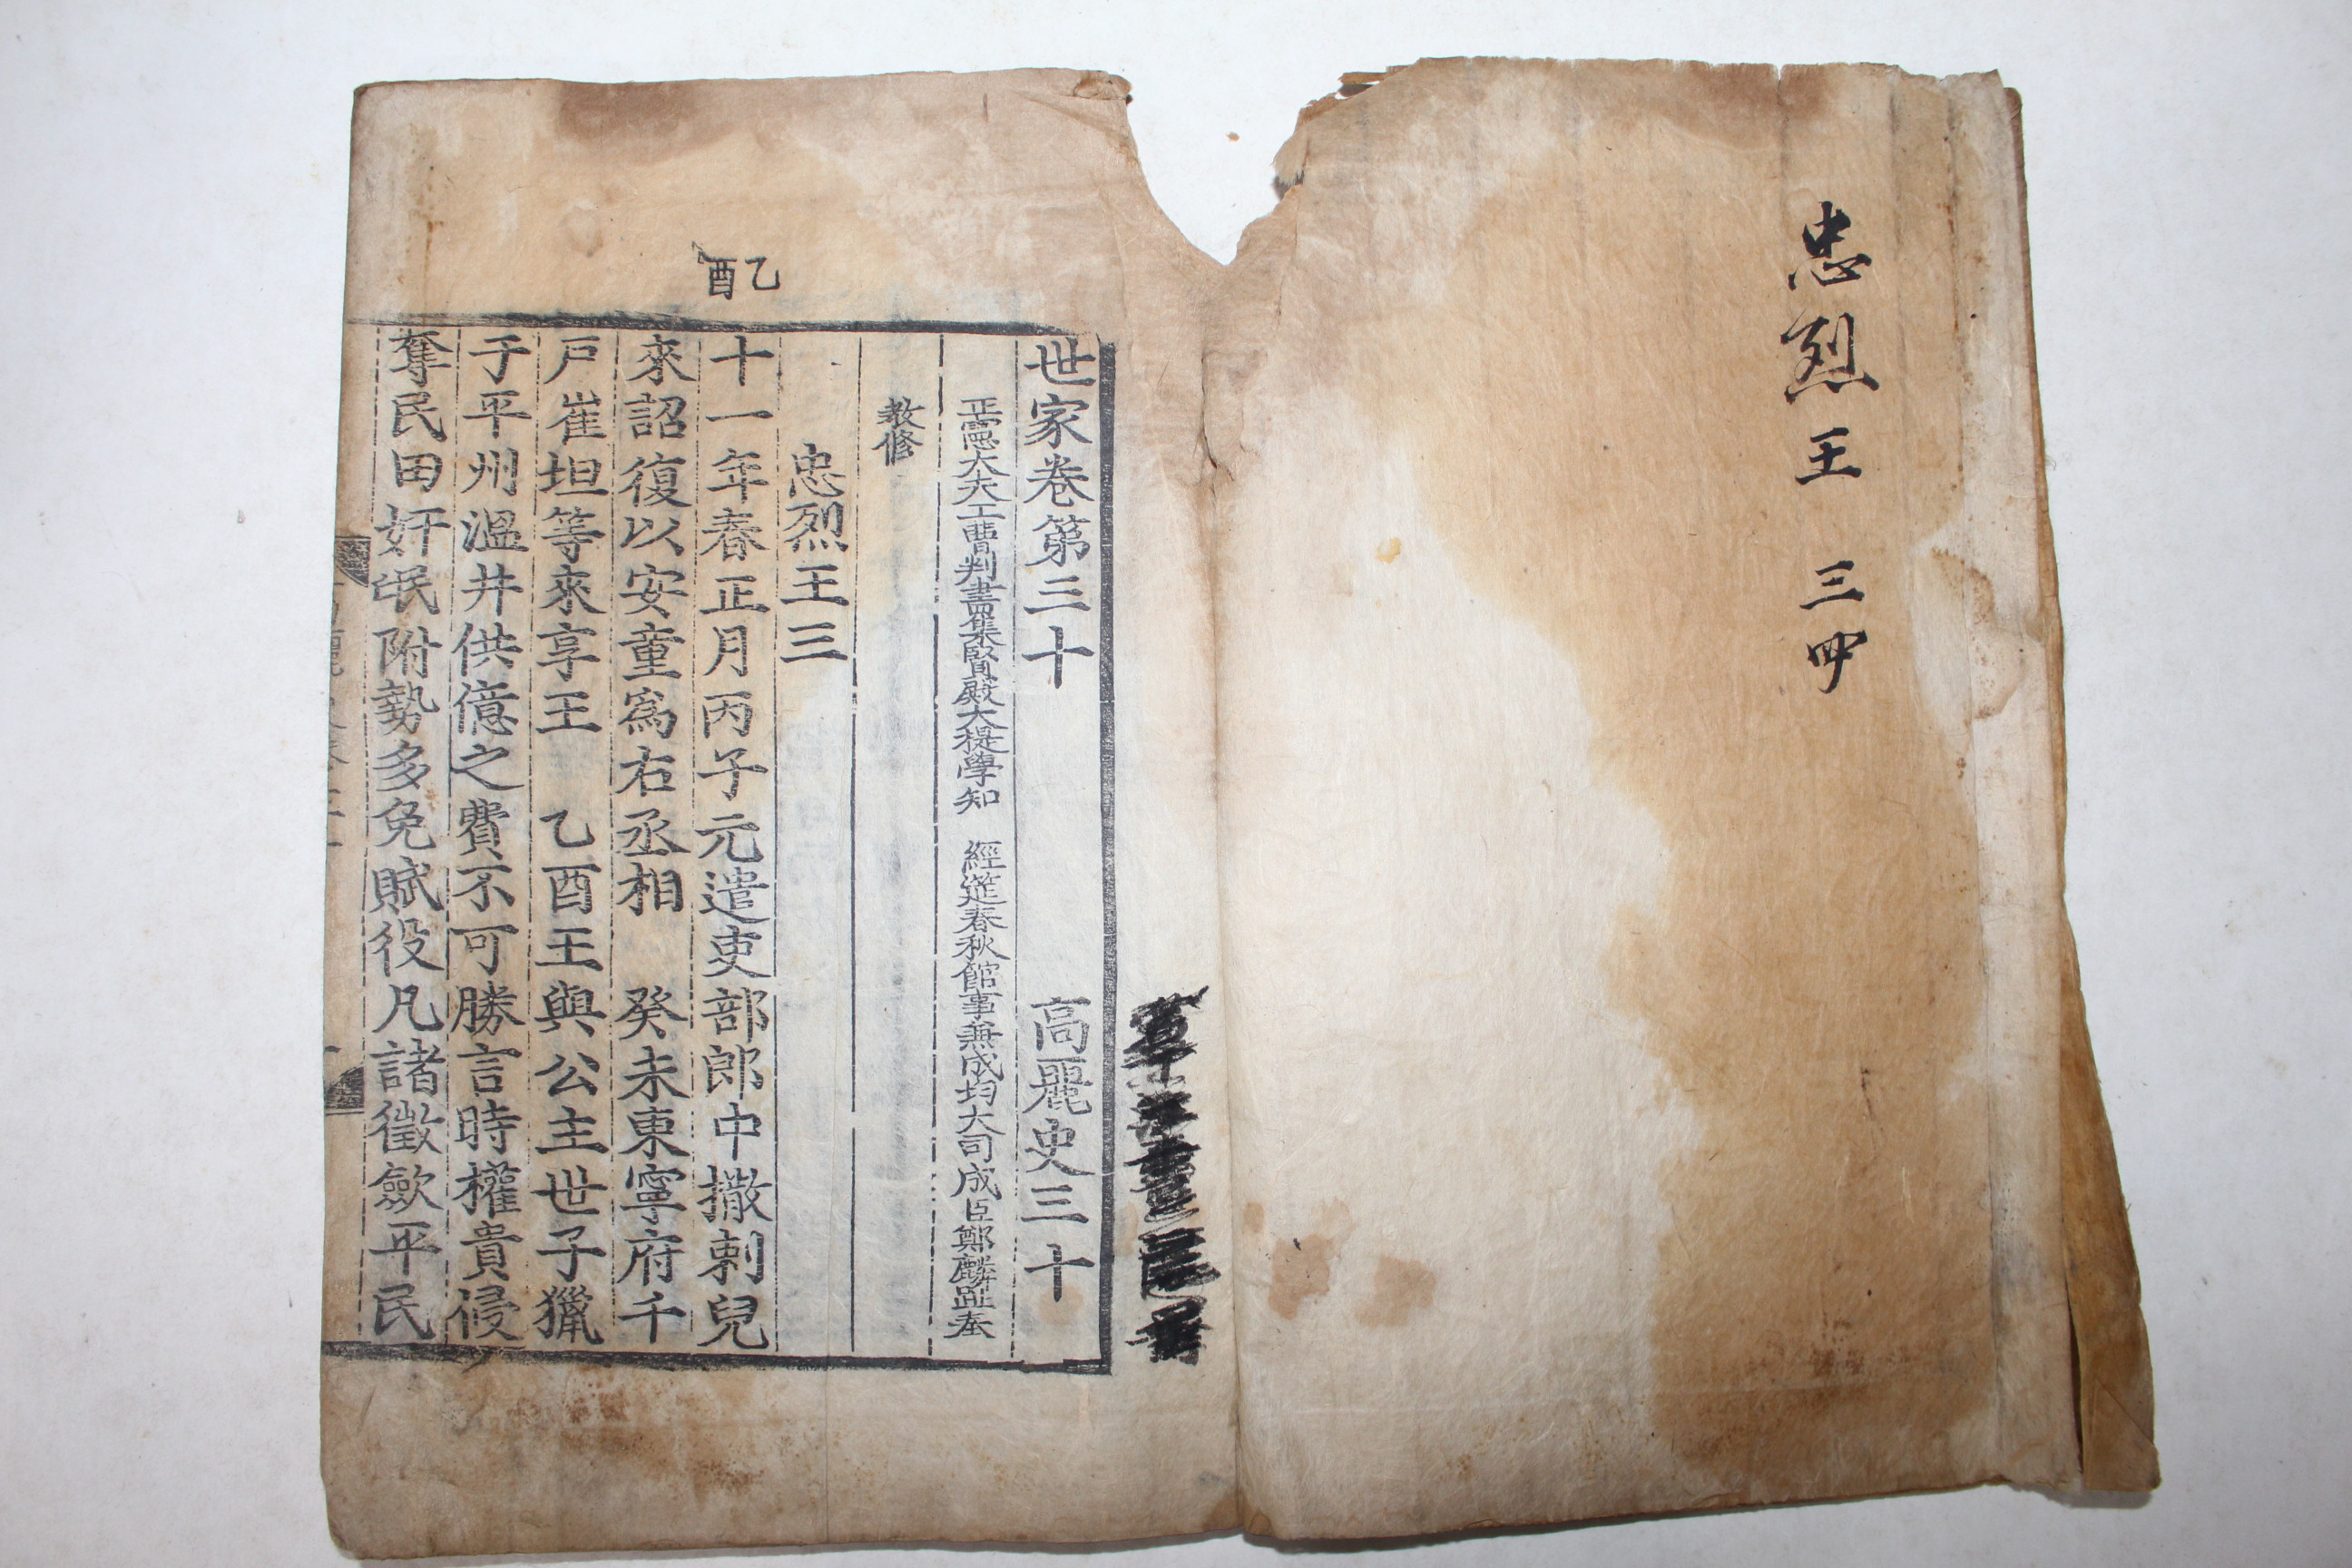 忠烈王 三四
世家卷第三十 高麗史三十
正憲大夫工曹判書集賢殿大提學知 經筵春秋館事兼成均大司成臣鄭麟趾奉
教修
忠烈王三
乙酉
十一年春正月丙子元遣吏部郎中撒剌兒
來詔復以安童爲右丞相 癸未東寧府千
戸崔坦等來享王 乙酉王與公主世子獵
于平州溫井供億之費不可勝言時權貴侵
奪民田奸氓附勢多免賦役凡諸徵斂平民